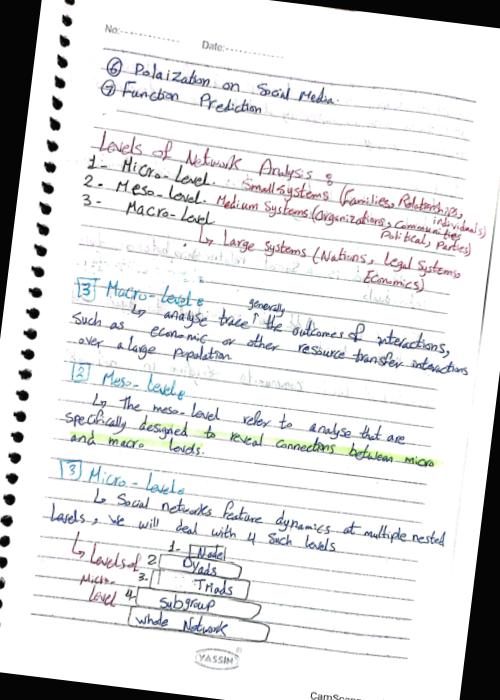 No:............... Date:...............
⑥ Polaization on Social Media.
⑦ Function Prediction
Levels of Network Analysis :
1- Micro-Level. Small systems (Families, Relationships, individuals)
2- Meso-Level. Medium Systems (Organizations, Communities
Political, Parties)
3- Macro-Level
↳ Large Systems (Nations, Legal Systems
Economics)
[3] Macro-level:
↳ analyse generally trace the outcomes of interactions,
Such as economic or other resource transfer interactions
over a large population.
[2] Meso-level:
↳ The meso-level refer to analyse that are
specifically designed to reveal connections between micro
and macro levels.
[3] Micro-level:
↳ Social networks feature dynamics at multiple nested
Levels, we will deal with 4 such levels
↳ Levels of Micro-Level
1- Node
2- Dyads
3- Triads
4- Subgroup
whole Network
YASSIN
CamSca